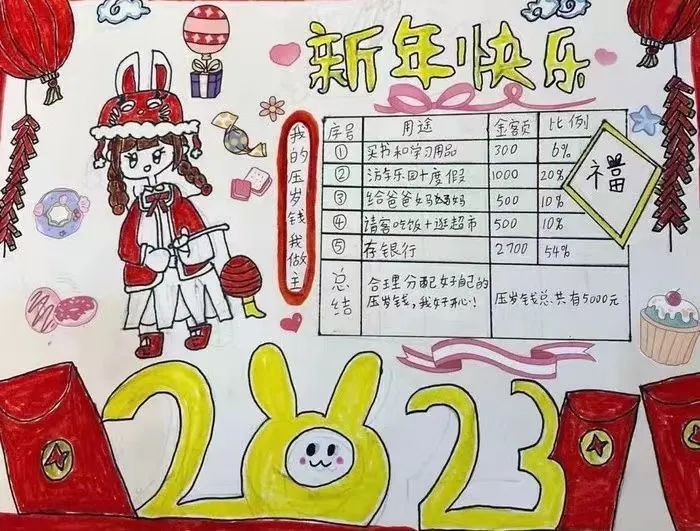 新年快乐
我的压岁钱我做主
序号 用途 金额 比例
① 买书和学习用品 300 6%
② 游乐园+度假 1000 20%
③ 给爸爸妈妈 500 10%
④ 请客吃饭+逛超市 500 10%
⑤ 存银行 2700 54%
总结 合理分配好自己的 压岁钱总共有5000元
压岁钱,我好开心!
福
2023